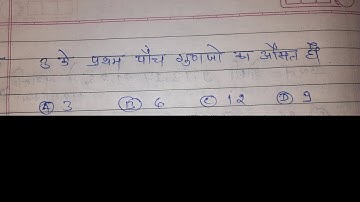 3 के प्रथम पाँच गुणजो का औसत है
Ⓐ 3 Ⓑ 6 Ⓒ 12 Ⓓ 9